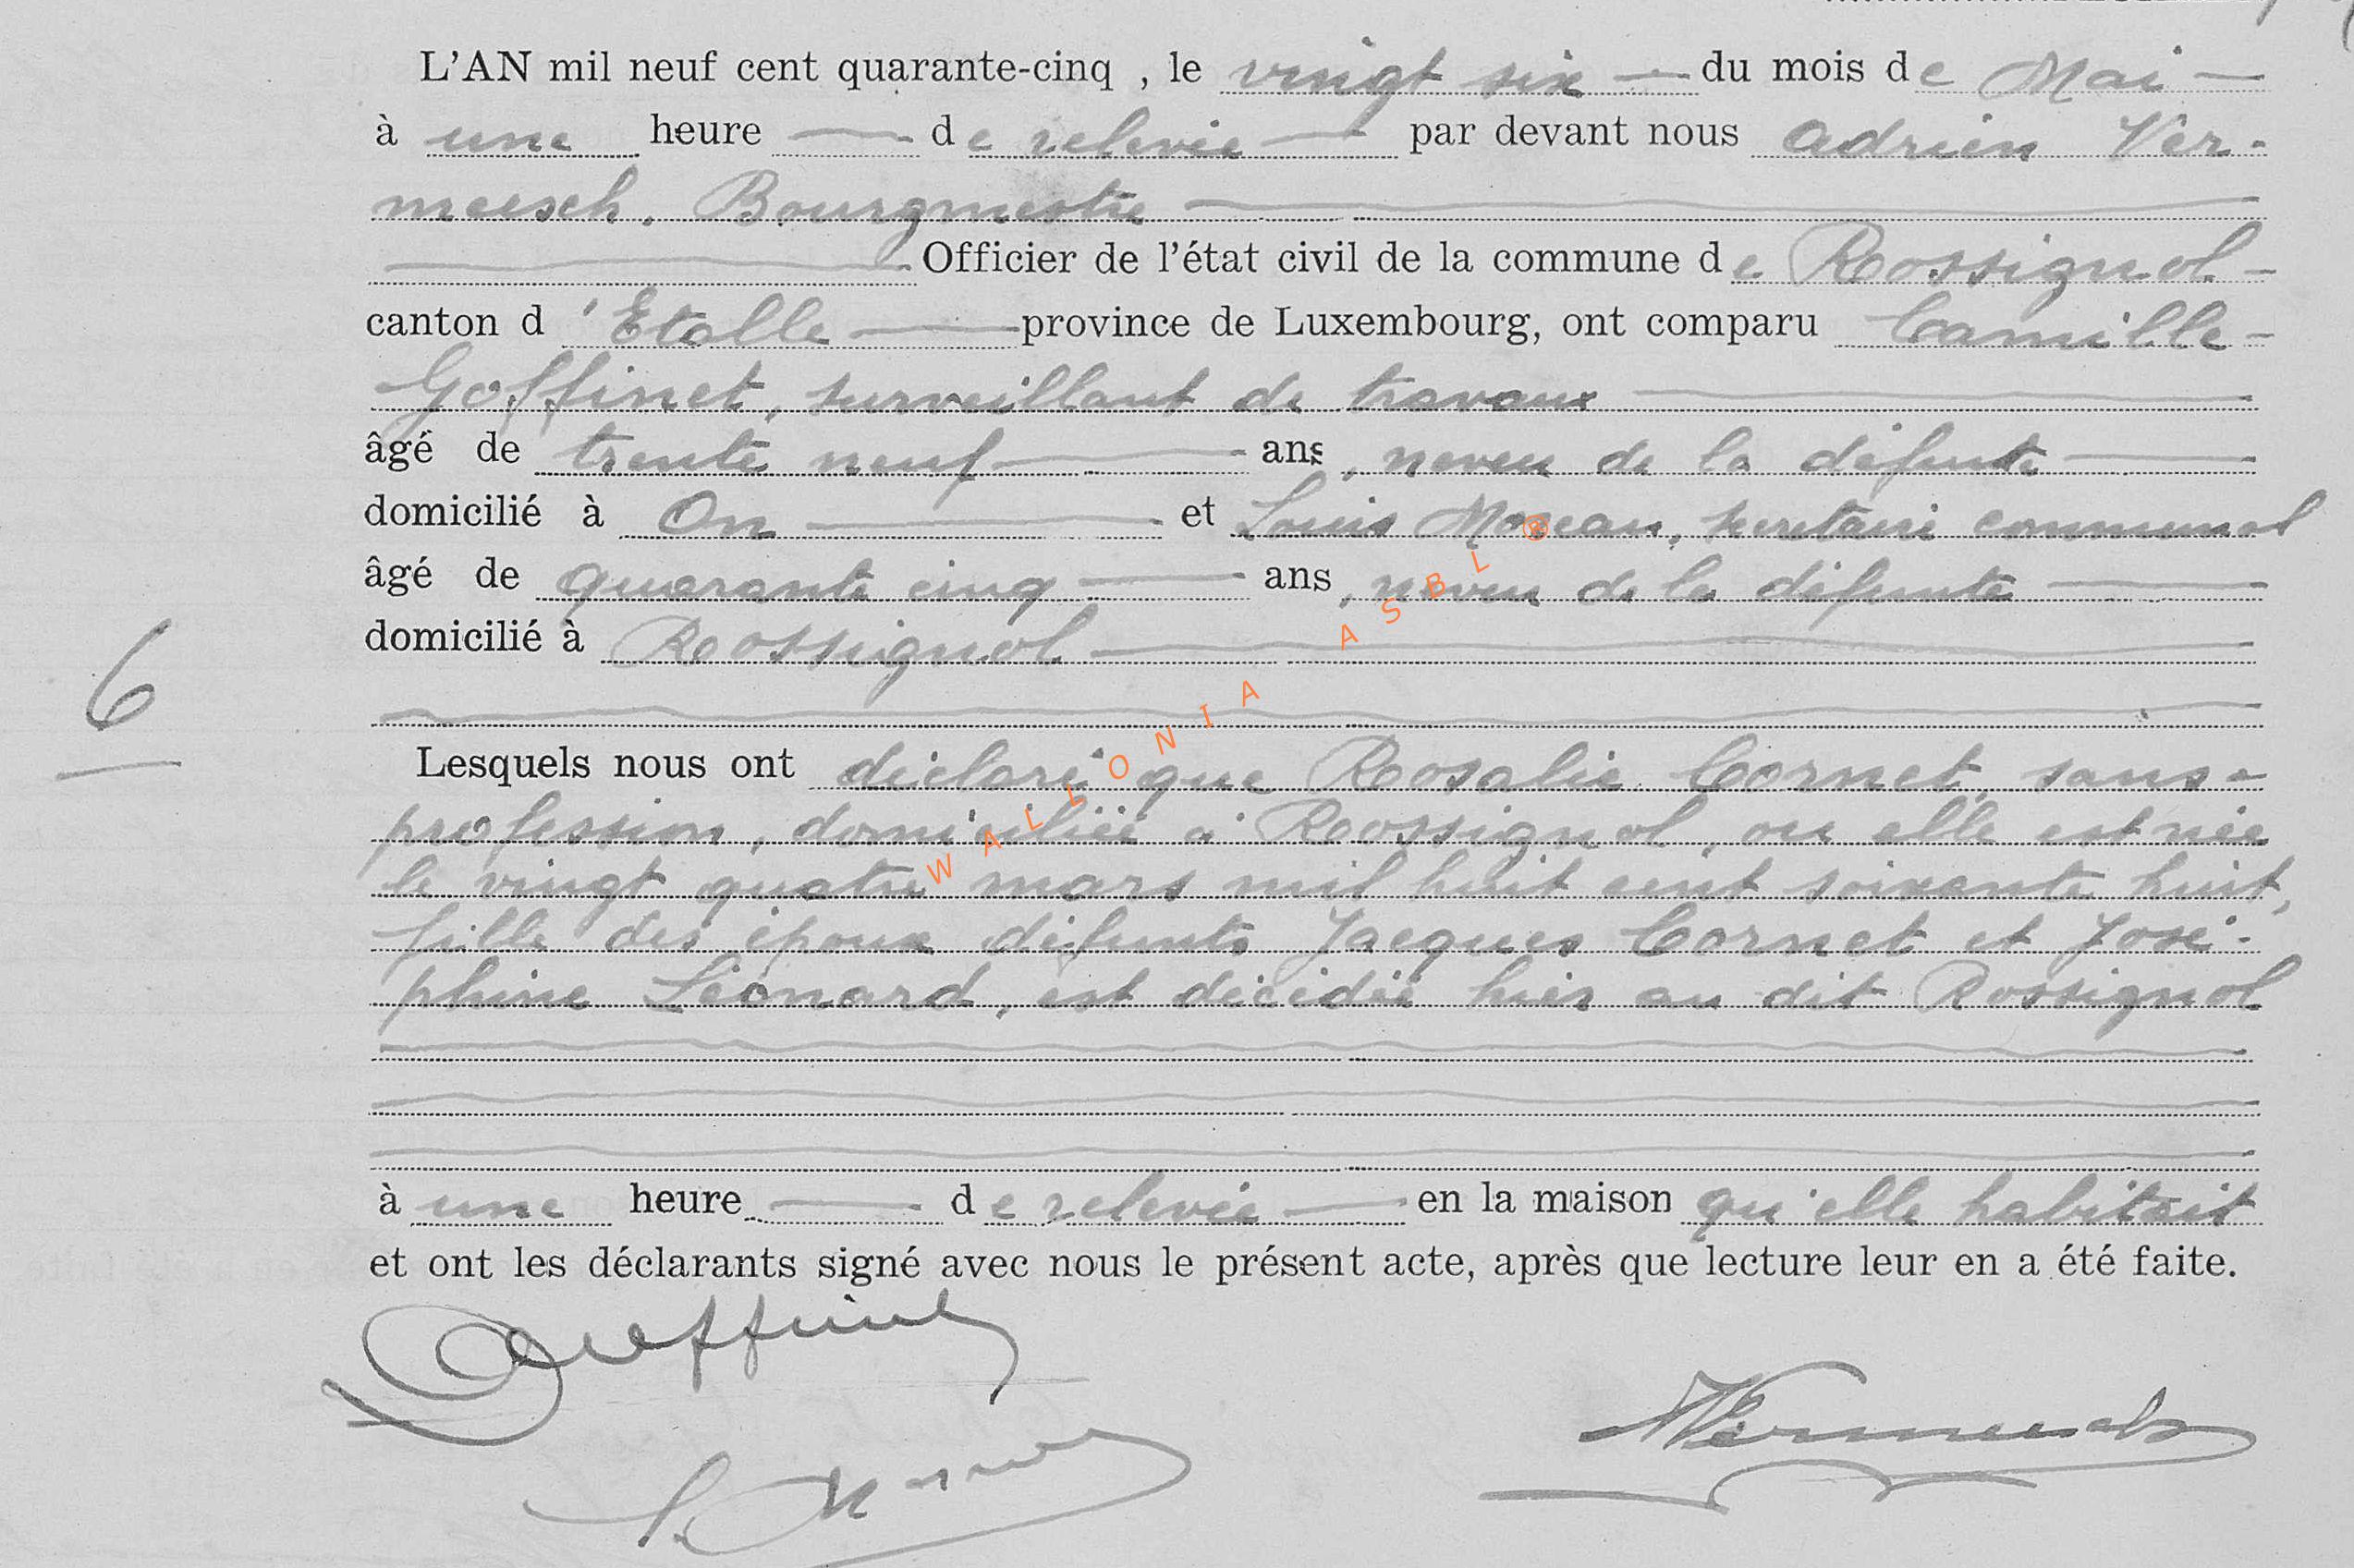 L'AN mil neuf cent quarante-cinq , le vingt six du mois de Mai
à une heure de relevée par devant nous Adrien Ver-
meesch, Bourgmestre
Officier de l'état civil de la commune de Rossignol
canton d'Etalle province de Luxembourg, ont comparu Camille
Goffinet, surveillant de travaux
âgé de trente neuf ans, neveu de la défunte
domicilié à On et Louis Moreau, secrétaire communal
âgé de quarante cinq ans, neveu de la défunte
domicilié à Rossignol
6
Lesquels nous ont déclaré que Rosalie Cornet, sans
profession, domiciliée à Rossignol, ou elle est née
le vingt quatre mars mil huit cent soixante huit,
fille des époux défunts Jacques Cornet et José-
phine Léonard, est décédée hier au dit Rossignol
à une heure de relevée en la maison qu'elle habitait
et ont les déclarants signé avec nous le présent acte, après que lecture leur en a été faite.
Goffinet
L. Moreau
Vermeesch
WALLONIA ASBL ®